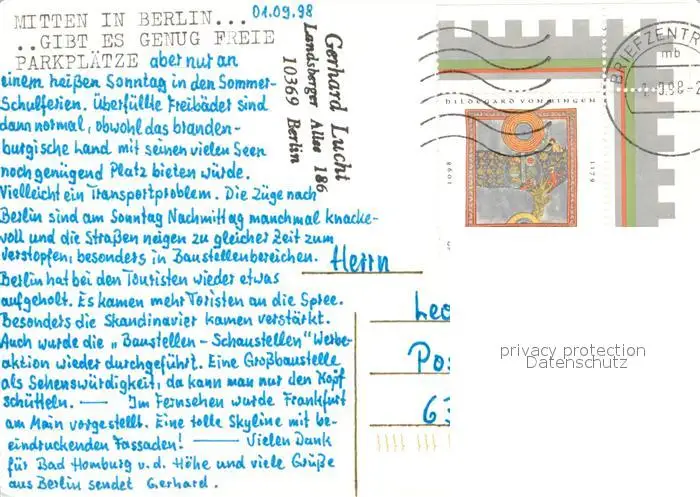 MITTEN IN BERLIN...
01.09.98
..GIBT ES GENUG FREIE
PARKPLÄTZE aber nur an
einem heißen Sonntag in den Sommer-
schulferien. Überfüllte Freibäder sind
dann normal, obwohl das branden-
burgische Land mit seinen vielen Seen
noch genügend Platz bieten würde.
Vielleicht ein Transportproblem. Die Züge nach
Berlin sind am Sonntag Nachmittag manchmal knacke-
voll und die Straßen neigen zu gleicher Zeit zum
verstopfen, besonders in Baustellenbereichen.
Berlin hat bei den Touristen wieder etwas
aufgeholt. Es kamen mehr Toristen an die Spree.
Besonders die Skandinavier kamen verstärkt.
Auch wurde die „Baustellen - Schaustellen" Werbe-
aktion wieder durchgeführt. Eine Großbaustelle
als Sehenswürdigkeit, da kann man nur den Kopf
schütteln. — Im Fernsehen wurde Frankfurt
am Main vorgestellt. Eine tolle Skyline mit be-
eindruckenden Fassaden! — Vielen Dank
für Bad Homburg v.d. Höhe und viele Grüße
aus Berlin sendet Gerhard.
Gerhard Lucht
Landsberger Allee 186
10369 Berlin
BRIEFZENTR
mb
HILDEGARD VON BINGEN
1098
1179
Herrn
Leo
Pos
63
privacy protection
Datenschutz